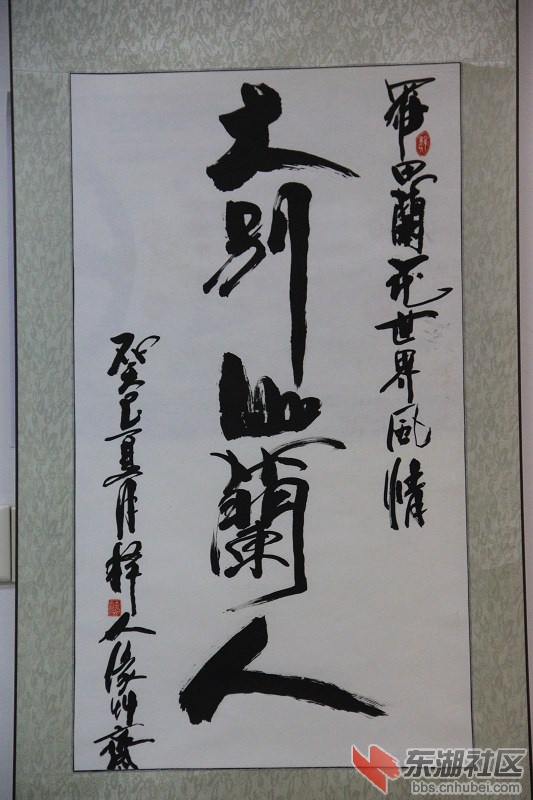 羅田蘭花世界風情
大别山蘭人
癸巳夏月人艸齋
东湖社区
bbs.cnhubei.com